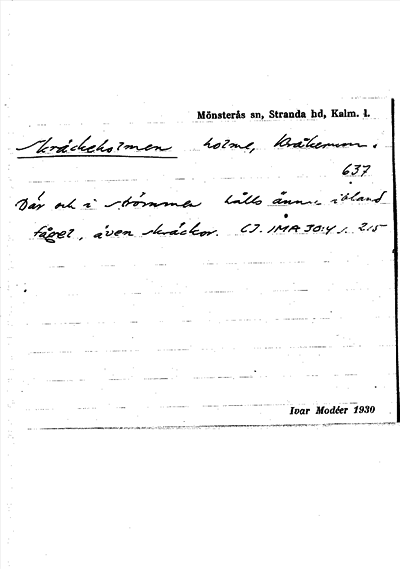 Mönsterås sn, Stranda hd, Kalm. l.
Skräckeholmen holme, Kråkerum.
637
Där och i strömmen hålls ännu ibland
fågel, även skräckor. Cf. IMA 30:4 s. 215
Ivar Modéer 1930